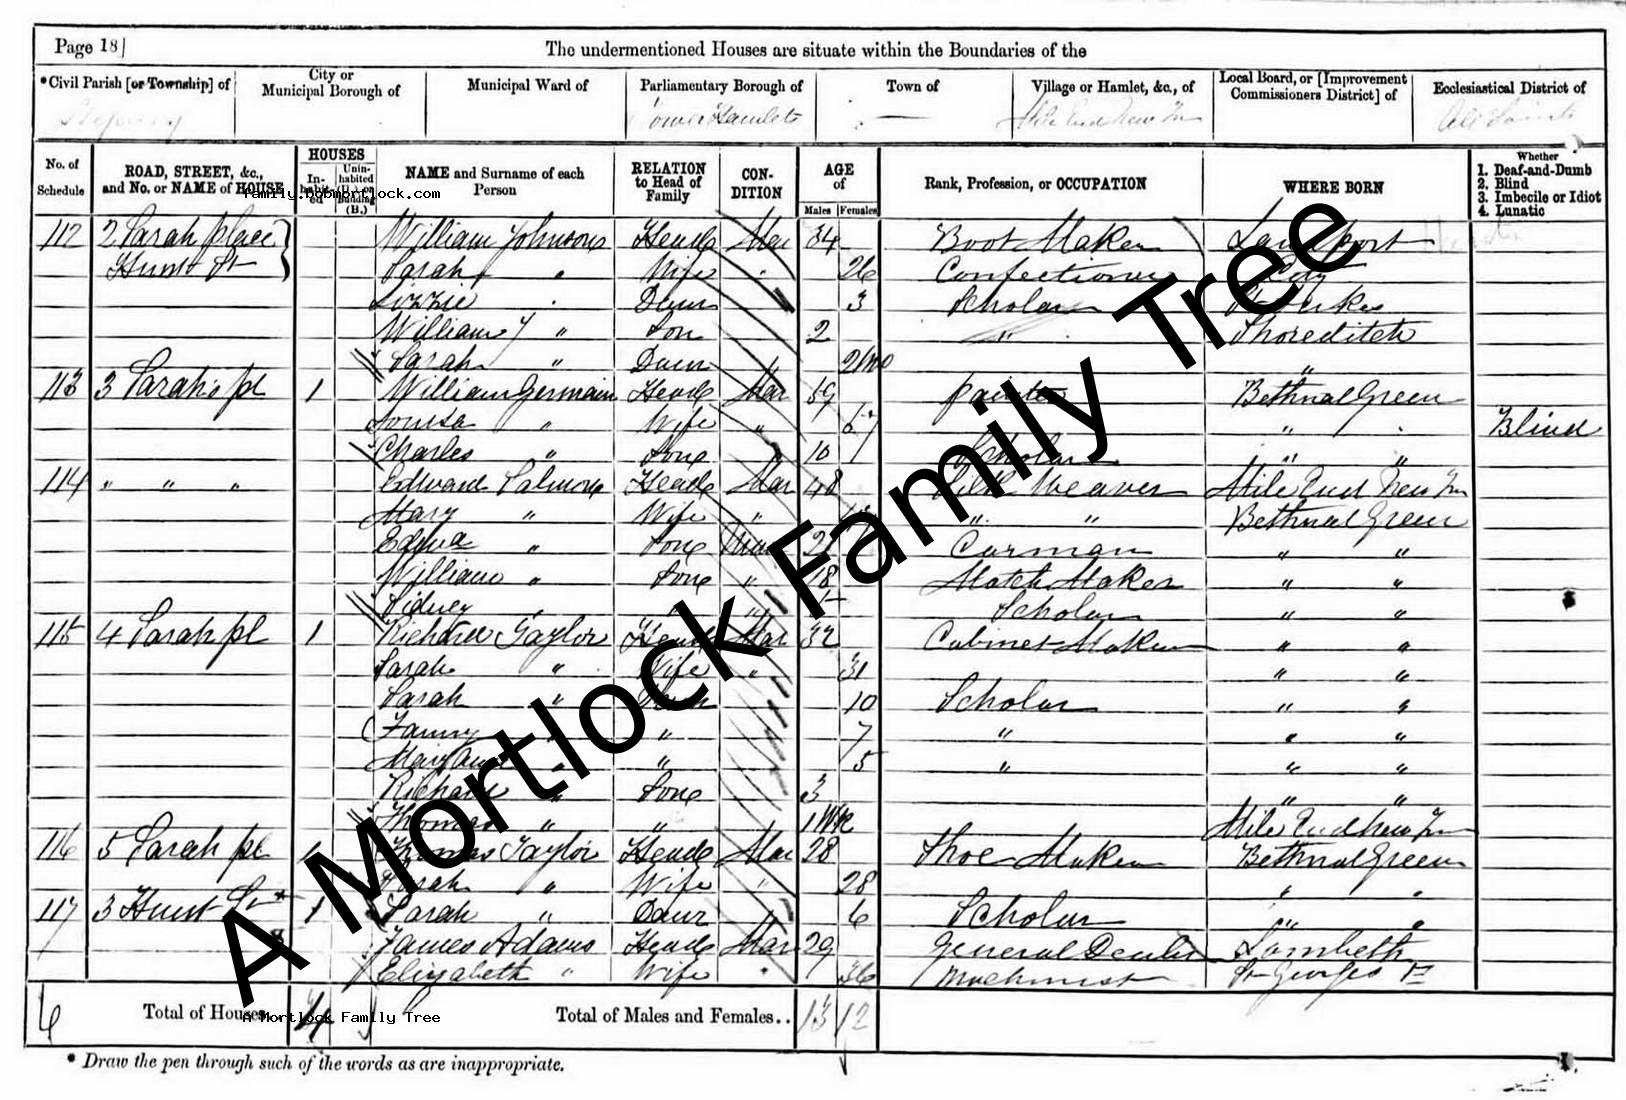 Page 18
The undermentioned Houses are situate within the Boundaries of the
*Civil Parish [or Township] of
City or Municipal Borough of
Municipal Ward of
Parliamentary Borough of
Town of
Village or Hamlet, &c., of
Local Board, or [Improvement Commissioners District] of
Ecclesiastical District of
Stepney Tower Hamlets — Mile End New Tn All Saints
No. of Schedule
ROAD, STREET, &c., and No. or NAME of HOUSE
HOUSES
In-habit-ed
Unin-habited (U.) or Building (B.)
NAME and Surname of each Person
RELATION to Head of Family
CON-DITION
AGE of
Males Females
Rank, Profession, or OCCUPATION
WHERE BORN
Whether
1. Deaf-and-Dumb
2. Blind
3. Imbecile or Idiot
4. Lunatic
family.bobmortlock.com
112 2 Sarah place William Johnson Head Mar 34 Boot Maker Landport
Hunt St Sarah " Wife 26 Confectioner City
Lizzie Daur 3 Scholar St Lukes
William J " Son 2 " Shoreditch
Sarah " Daur 2 mo "
113 3 Sarah's pl 1 William Germain Head Mar 59 painter Bethnal Green
Louisa " Wife " " Blind
Charles " Son 10 Scholar " "
114 " " " Edward Salmon Head Mar 48 Silk Weaver Mile End New Tn
Mary " Wife " " " Bethnal Green
" Son Carman " "
William " Son " 18 Match Maker " "
Sidney " Scholar " "
115 4 Sarah pl 1 Richard Taylor Head Mar 32 Cabinet Maker " "
Sarah " Wife " 31 " "
Sarah " Daur 10 Scholar " "
Fanny " " 7 " " "
Mary Ann " " 5 " " "
Richard " Son 3 " "
Thomas " " 1 Wk Mile End New Tn
116 5 Sarah pl 1 Thomas Taylor Head Mar 28 Shoe Maker Bethnal Green
Sarah " Wife " 28 " "
117 3 Hunt St 1 Sarah " Daur 6 Scholar " "
James Adams Head Mar 29 General Dealer Lambeth
Elizabeth " Wife 36 Machinist St Georges
6 Total of Houses 4 Total of Males and Females.. 13 12
A Mortlock Family Tree
* Draw the pen through such of the words as are inappropriate.
A Mortlock Family Tree